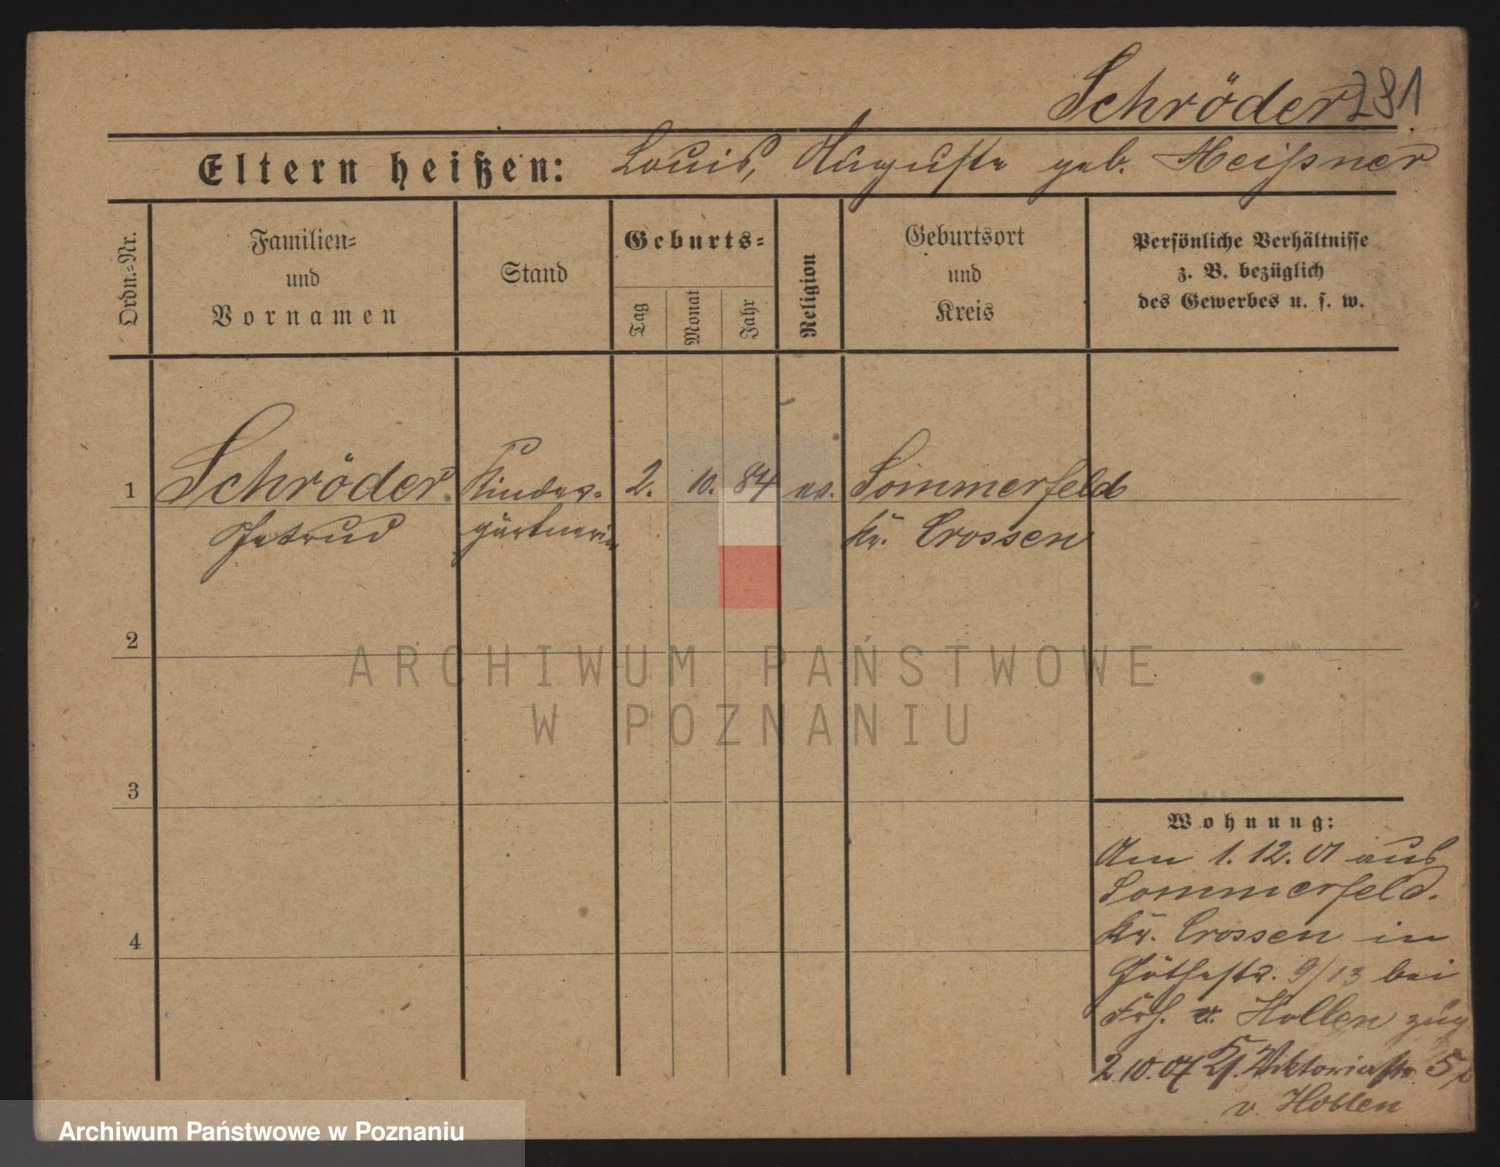 Schröder 281
Eltern heißen: Louis, Auguste geb. Meißner
Ordn.-Nr.
Familien-
und
Vornamen
Stand
Geburts-
Tag
Monat
Jahr
Religion
Geburtsort
und
Kreis
Persönliche Verhältnisse
z. B. bezüglich
des Gewerbes u. s. w.
1 Schröder Kinder- 2. 10. 84 ev. Sommerfeld
gärtnerin Kr. Crossen
2
3
4
ARCHIWUM PAŃSTWOWE
W POZNANIU
Wohnung:
Am 1. 12. 01 aus
Sommerfeld.
Kr. Crossen in
Göthestr. 9/13 bei
Frh. v. Hollen zug
2.10.07 Viktoriastr. 5
v. Hollen
Archiwum Państwowe w Poznaniu